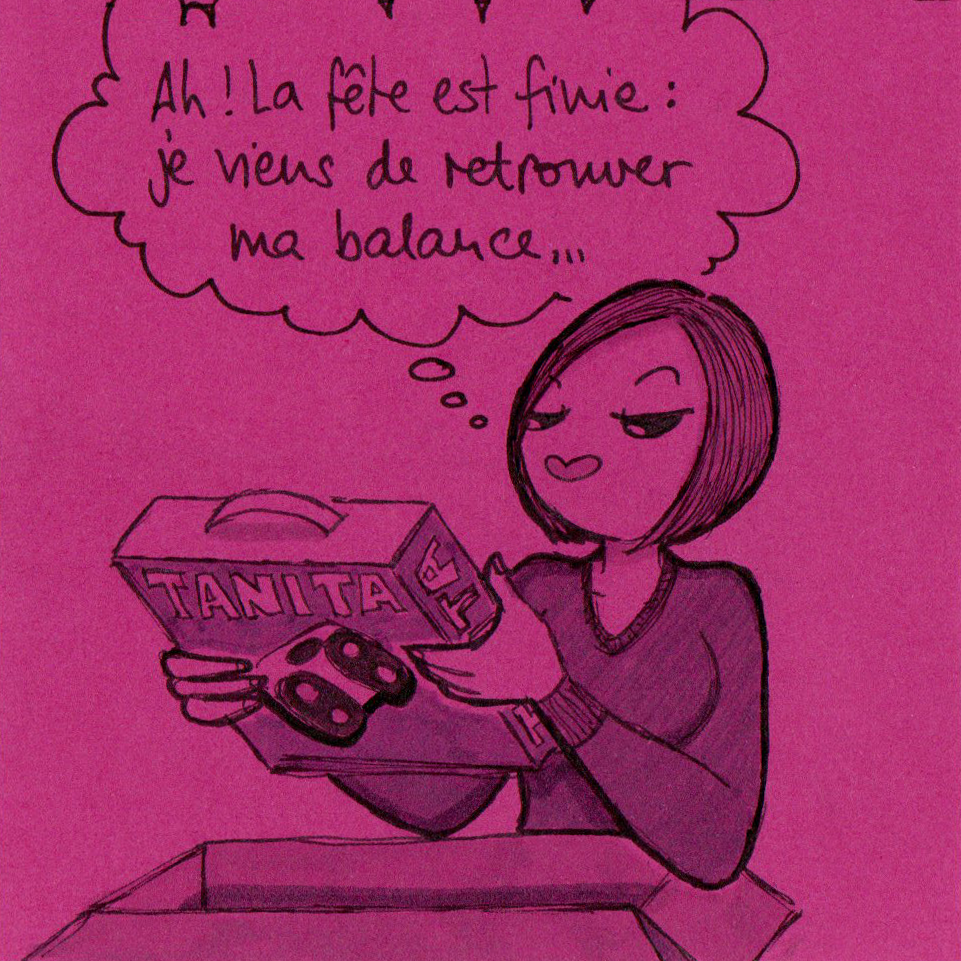 Ah ! La fête est finie :
je viens de retrouver
ma balance...
TANITA
TA
T